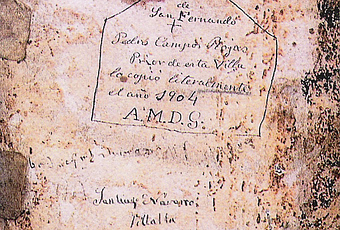 de
San Fernando
Pedro Campos Rojas
Prior de esta Villa
lo copió literalmente
el año 1904
A.M.D.G.
Santiago Navarro
Villalta